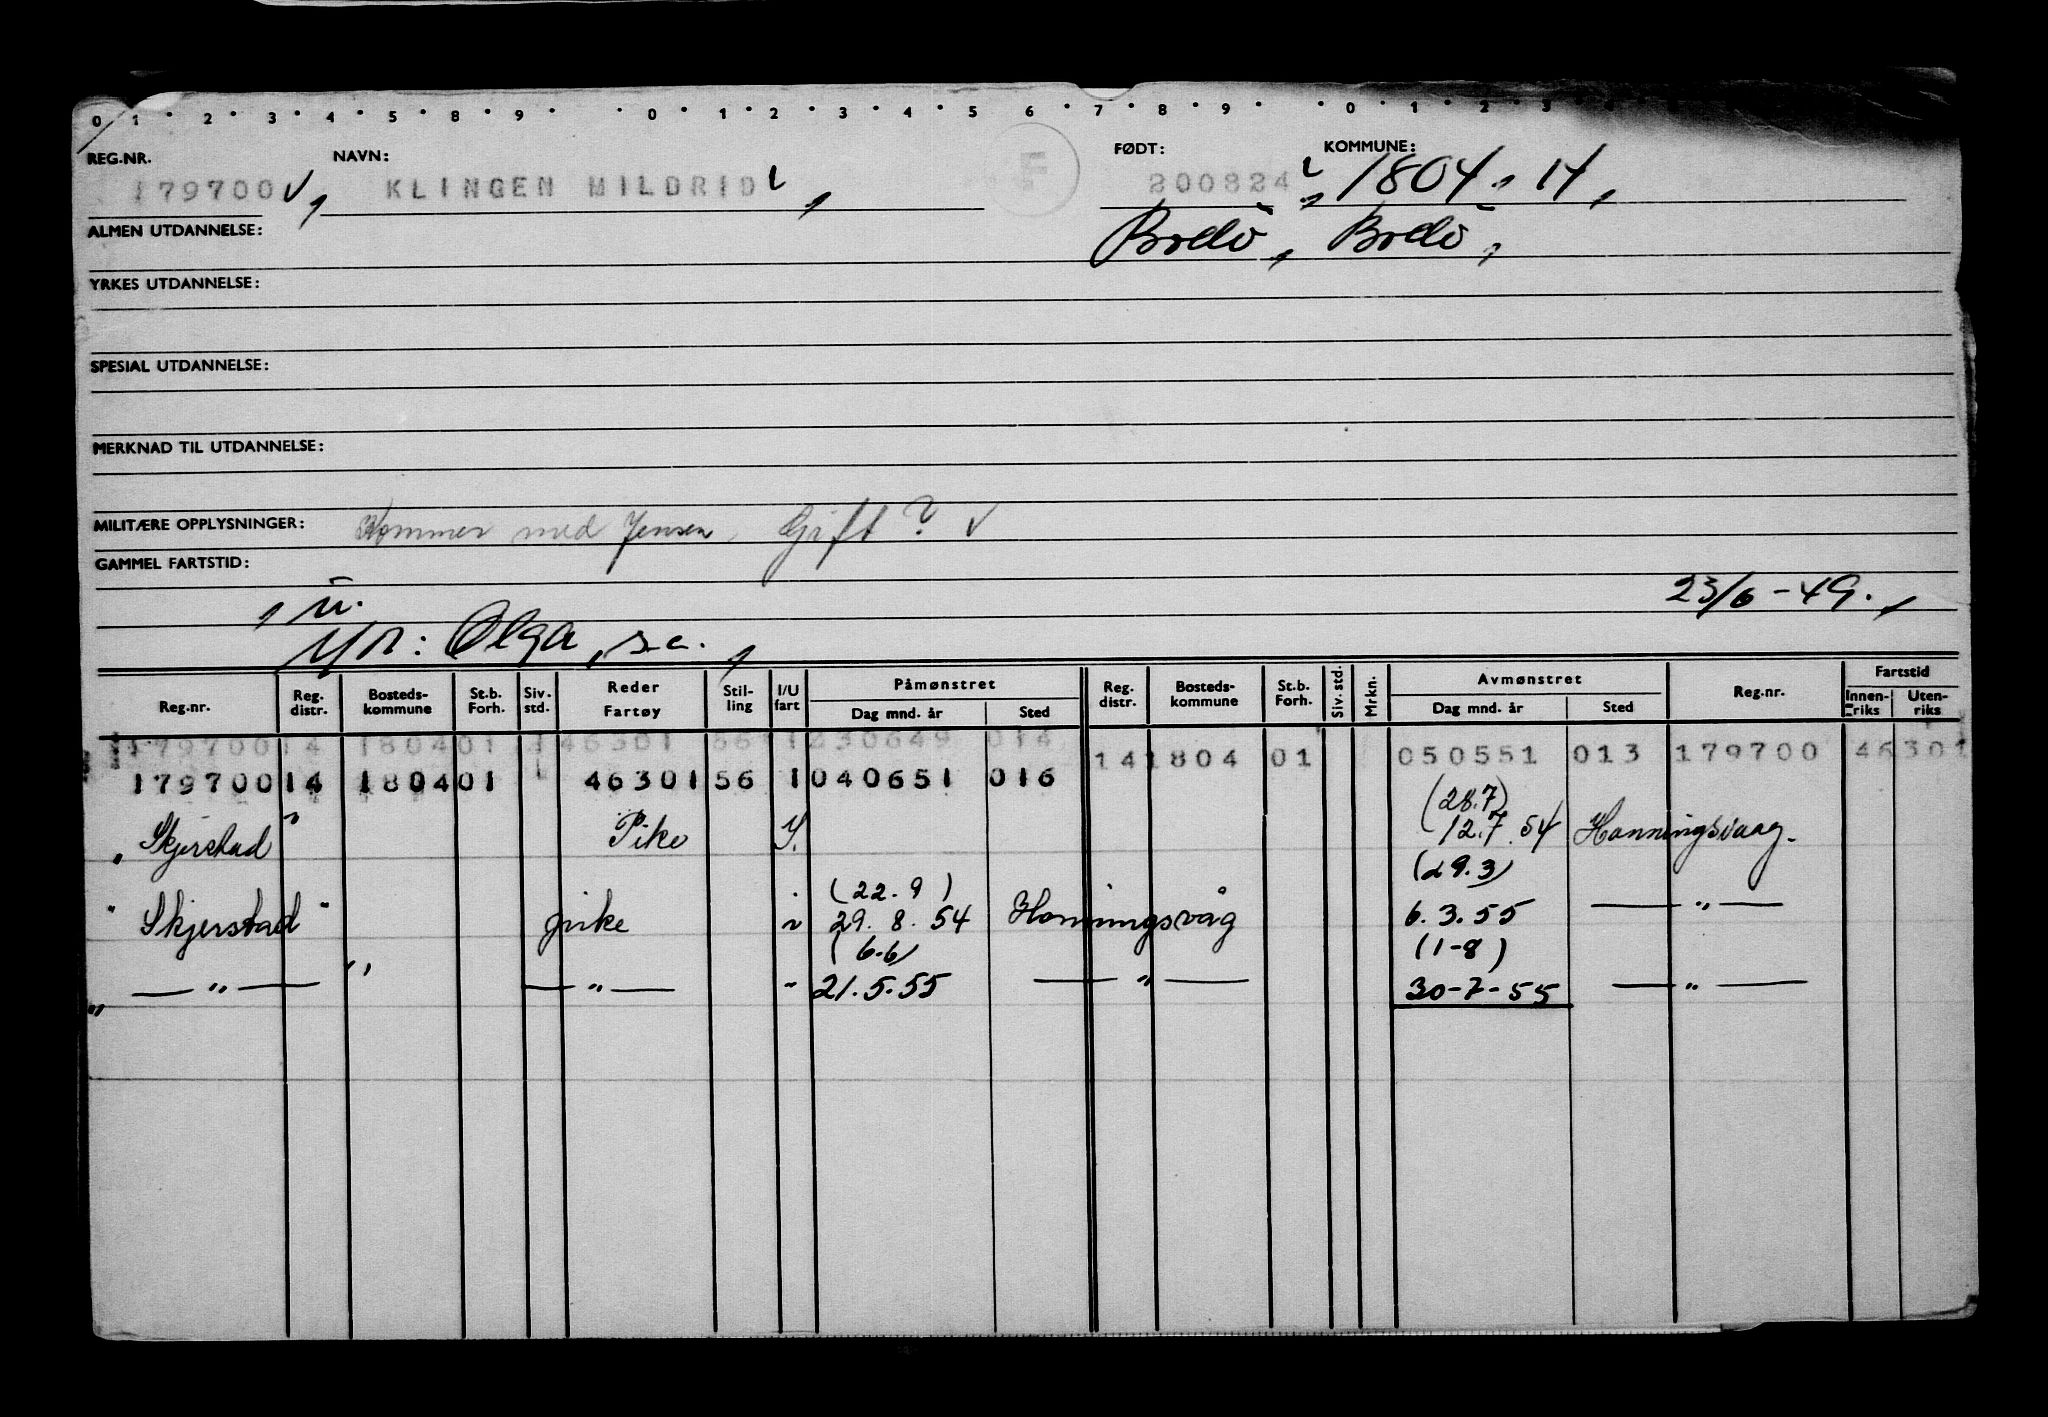 0 1 2 3 4 5 8 9 0 1 2 3 4 5 6 7 8 9 0 1 2 3
REG.NR. NAVN: F FØDT: KOMMUNE:
179700 KLINGEN MILDRID 200824 1804, 14,
ALMEN UTDANNELSE: Bodö, Bodö,
YRKES UTDANNELSE:
SPESIAL UTDANNELSE:
MERKNAD TIL UTDANNELSE:
MILITÆRE OPPLYSNINGER: Kommer med Jensen, Gift?
GAMMEL FARTSTID:
u. 23/6-49.,
Olga, s.a.,
Reg.nr. Reg. distr. Bosteds-kommune St.b. Forh. Siv. std. Reder Fartøy Stil-ling I/U fart Påmønstret Dag mnd. år Sted Reg. distr. Bosteds-kommune St.b. Forh. Siv. std. Mrkn. Avmønstret Dag mnd. år Sted Reg.nr. Fartstid Innen-riks Uten-riks
179700 14 1804 01 1 46301 56 1 230649 014 14 1804 01 050551 013 179700 46301
179700 14 1804 01 46301 56 1 040651 016
(28.7)
Skjerstad " Pike 12.7.54 Honningsvaag.
(22.9) (29.3)
" Skjerstad " pike 29.8.54 Honningsvåg 6.3.55 — " —
(6.6) (1-8)
" — " — — " — " 21.5.55 — " — 30-7-55 — " —